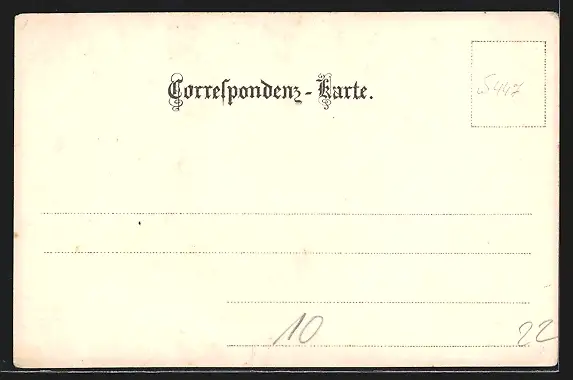 Correſpondenz-Karte.
S447
10
22